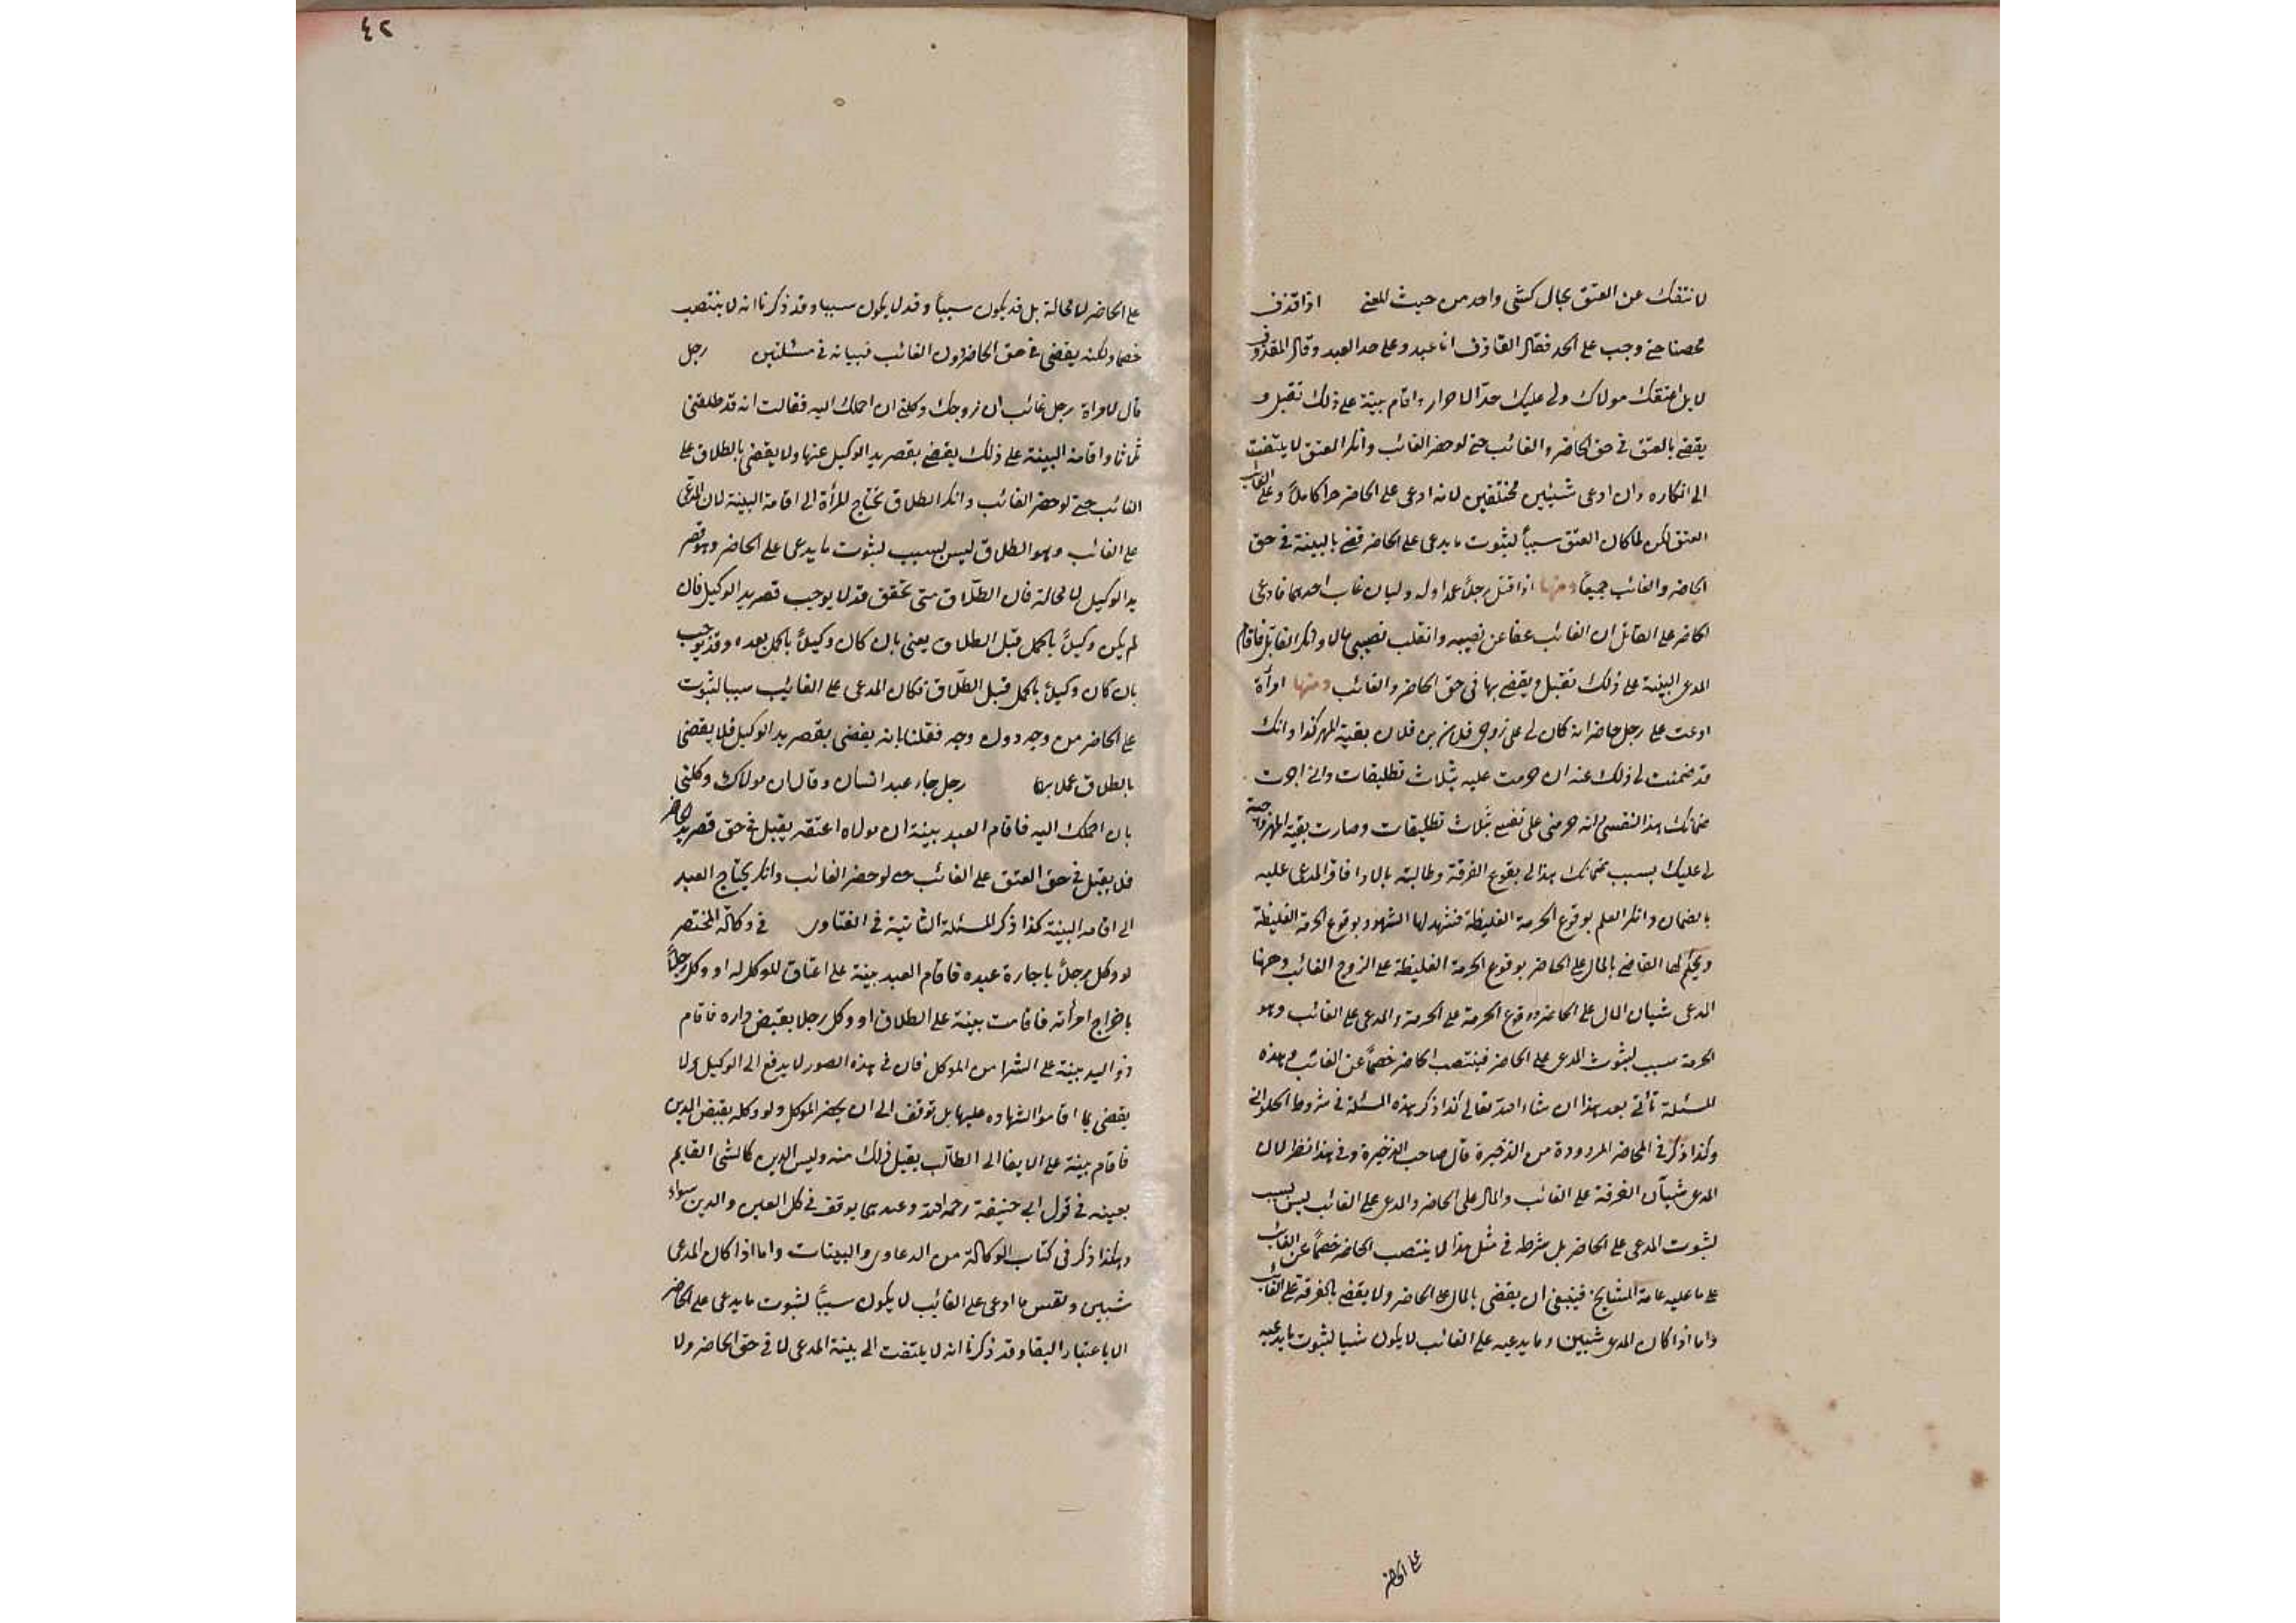 لا تنفك عن العتق بحال كشئ واحد من حيث المعنى اذا قذف
محصنا حتى وجب على الحد فقال القاذف انا عبد وعلى حد العبد وقال المقذوف
لا بل اعتقك مولاك ولى عليك حد الاحرار واقام بينة على ذلك تقبل و
يقضى بالعتق فى حق الحاضر والغائب حتى لو حضر الغائب وانكر العتق لا يلتفت
الى انكاره وان ادعى شيئين مختلفين لانه ادعى على الحاضر حدا كاملا وعلى الغائب
العتق لكن لما كان العتق سببا لثبوت ما يدعى على الحاضر قضى بالبينة فى حق
الحاضر والغائب جميعا ومنها اذا قتل رجل عمدا وله وليان غاب احدهما فادعى
الحاضر على القاتل ان الغائب عفا عن نصيبه وانقلب نصيبى مالا وانكر القاتل فاقام
المدعى البينة على ذلك تقبل ويقضى بها فى حق الحاضر والغائب ومنها امرأة
ادعت على رجل حاضر انه كان لى على زوجى فلان بن فلان بقية المهر كذا وانك
قد ضمنت لى ذلك عنه ان حرمت عليه بثلاث تطليقات وانى اجزت
ضمانك هذا لنفسى وانه حرمنى على نفسه بثلاث تطليقات وصارت بقية المهر واجبة
لى عليك بسبب ضمانك هذا لى بوقوع الفرقة وطالبته بالاداء فاقر المدعى عليه
بالضمان وانكر العلم بوقوع الحرمة الغليظة فشهد لها الشهود بوقوع الحرمة الغليظة
ويحكم لها القاضى بالمال على الحاضر بوقوع الحرمة الغليظة على الزوج الغائب وههنا
المدعى شيئان المال على الحاضر ووقوع الحرمة على الحرمة والمدعى على الغائب وهو
الحرمة سبب لثبوت المدعى على الحاضر فينتصب الحاضر خصما عن الغائب وهذه
المسئلة تأتى بعد هذا ان شاء الله تعالى كذا ذكر هذه المسئلة فى شروط الحلوانى
وكذا ذكر فى المحاضر المردودة من الذخيرة قال صاحب الذخيرة وفى هذا نظر لان
المدعى شيآن الفرقة على الغائب والمال على الحاضر والمدعى على الغائب ليس بسبب
لثبوت المدعى على الحاضر بل شرطه فى مثل هذا لا ينتصب الحاضر خصما عن الغائب
على ما عليه عامة المشايخ فينبغى ان يقضى بالمال على الحاضر ولا يقضى بالفرقة على الغائب
واما اذا كان المدعى شيئين وما يدعيه على الغائب لا يكون شيا لثبوت ما يدعيه
على الحاضر
٤٢
على الحاضر لا محالة بل قد يكون سببا وقد لا يكون سببا وقد ذكرنا انه لا ينتصب
خصما ولكنه يقضى فى حق الحاضر دون الغائب فبيانه فى مسئلتين رجل
قال لامراة رجل غائب ان زوجك وكلنى ان احملك اليه فقالت انه قد طلقنى
ثلاثا واقامة البينة على ذلك يقضى بقصر يد الوكيل عنها ولا يقضى بالطلاق على
الغائب حتى لو حضر الغائب وانكر الطلاق تحتاج المرأة الى اقامة البينة لان المدعى
على الغائب وهو الطلاق ليس بسبب لثبوت ما يدعى على الحاضر وهو قصر
يد الوكيل لا محالة فان الطلاق متى تحقق قد لا يوجب قصر يد الوكيل فان
لم يكن وكيلا بالحمل قبل الطلاق يعنى بان كان وكيلا بالحمل بعده وقد يوجب
بان كان وكيلا بالحمل قبل الطلاق فكان المدعى على الغائب سببا لثبوت
على الحاضر من وجه دون وجه فقلنا بانه يقضى بقصر يد الوكيل فلا يقضى
بالطلاق عملا بهما رجل جاء عبد انسان وقال ان مولاك وكلنى
بان احملك اليه فاقام العبد بينة ان مولاه اعتقه يقبل فى حق قصر يد الحاضر
فلا يقبل فى حق العتق على الغائب حتى لو حضر الغائب وانكر يحتاج العبد
الى اقامة البينة كذا ذكر المسئلة الثانية فى الفتاوى فى وكالة المختصر
لو وكل رجلا باجارة عبده فاقام العبد بينة على اعتاق الموكل له او وكل رجلا
باخراج امرأته فاقامت بينة على الطلاق او وكل رجلا بقبض داره فاقام
ذو اليد بينة على الشرا من الموكل فان فى هذه الصور لا يدفع الى الوكيل ولا
يقضى بما اقاموا الشهاده عليها بل توقف الى ان يحضر الموكل ولو وكله بقبض الدين
فاقام بينة على الايفا الى الطالب يقبل ذلك منه وليس الدين كالشى القايم
بعينه فى قول ابى حنيفة رحمه الله وعندهما يوقف فى كل العين والدين سواء
وهكذا ذكر فى كتاب الوكالة من الدعاوى والبينات واما اذا كان المدعى
شيئين ونفس ما ادعى على الغائب لا يكون سببا لثبوت ما يدعى على الحاضر
الا باعتبار البقا وقد ذكرنا انه لا يلتفت الى بينة المدعى لا فى حق الحاضر ولا